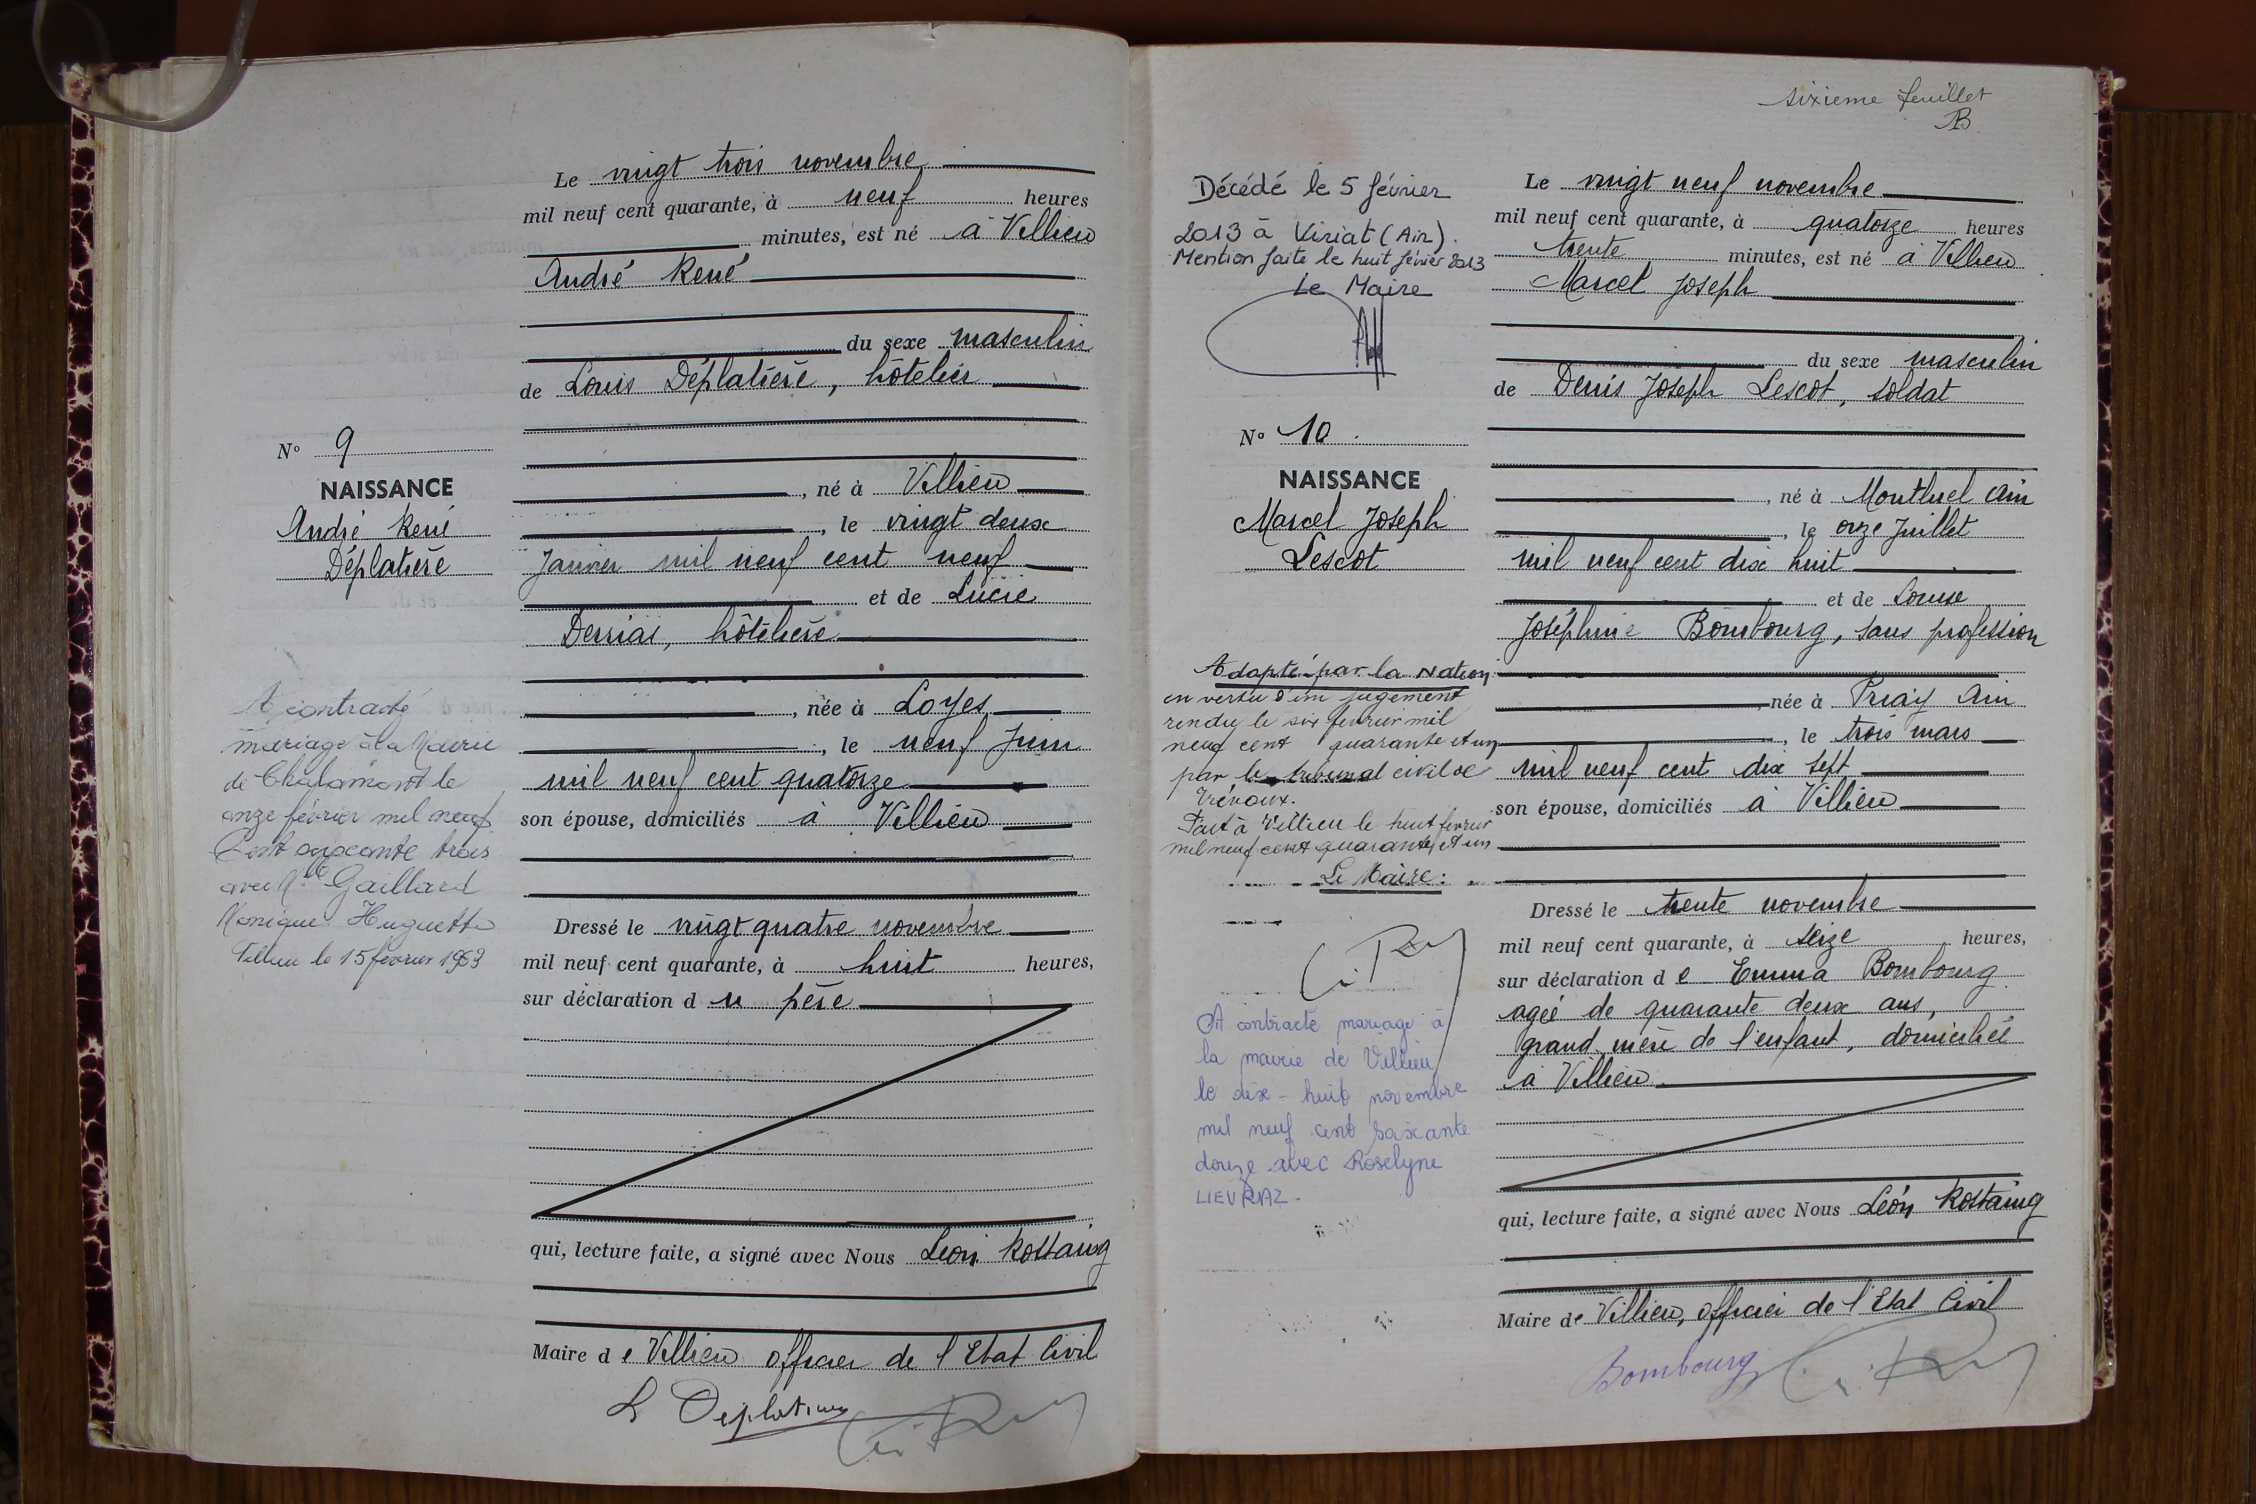 Le vingt trois novembre
mil neuf cent quarante, à neuf heures
minutes, est né à Villieu
André René
du sexe masculin
de Louis Déplatière, hôtelier
N° 9
NAISSANCE
André René
Déplatière
, né à Villieu
, le vingt deux
Janvier mil neuf cent neuf
et de Lucie
Derrias, hôtelière
, née à Loyes
, le neuf Juin
mil neuf cent quatorze
son épouse, domiciliés à Villieu
A contracté
mariage à la Mairie
de Chalamont le
onze février mil neuf
Cent soixante trois
avec Mlle Gaillard
Monique Huguette
Villieu le 15 février 1963
Dressé le vingt quatre novembre
mil neuf cent quarante, à huit heures,
sur déclaration du père
qui, lecture faite, a signé avec Nous Léon Rostaing
Maire de Villieu officier de l'Etat Civil
L Déplatière
sixieme feuillet
Décédé le 5 février
2013 à Viriat (Ain).
Mention faite le huit février 2013
Le Maire
Le vingt neuf novembre
mil neuf cent quarante, à quatorze heures
trente minutes, est né à Villieu
Marcel Joseph
du sexe masculin
de Denis Joseph Lescot, soldat
N° 10.
NAISSANCE
Marcel Joseph
Lescot
, né à Montluel Ain
, le onze Juillet
mil neuf cent dix huit
et de Louise
Joséphine Bombourg, sans profession
née à Priay Ain
, le trois mars
mil neuf cent dix sept
son épouse, domiciliés à Villieu
Adopté par la Nation
en vertu d'un jugement
rendu le six fevrier mil
neuf cent quarante et un
par le tribunal civil de
Trévoux.
Fait à Villieu le huit fevrier
mil neuf cent quarante et un
Le Maire:
A contracté mariage à
la mairie de Villieu
le dix-huit novembre
mil neuf cent soixante
douze avec Roselyne
LIEVRAZ.
Dressé le trente novembre
mil neuf cent quarante, à seize heures,
sur déclaration de Emma Bombourg
agée de quarante deux ans,
grand mère de l'enfant, domiciliée
à Villieu
qui, lecture faite, a signé avec Nous Léon Rostaing
Maire de Villieu, officier de l'Etat Civil
Bombourg